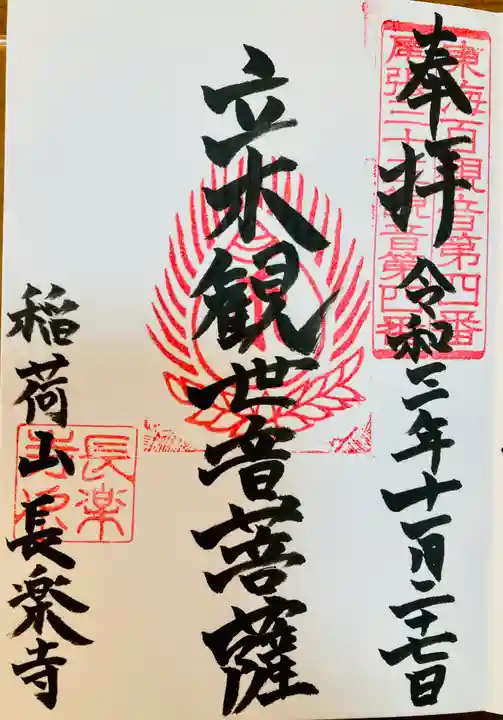 奉拝
令和三年十一月二十七日
東海百観音第四番
尾張三十三観音第四番
立木観世音菩薩
稲荷山長楽寺
長楽